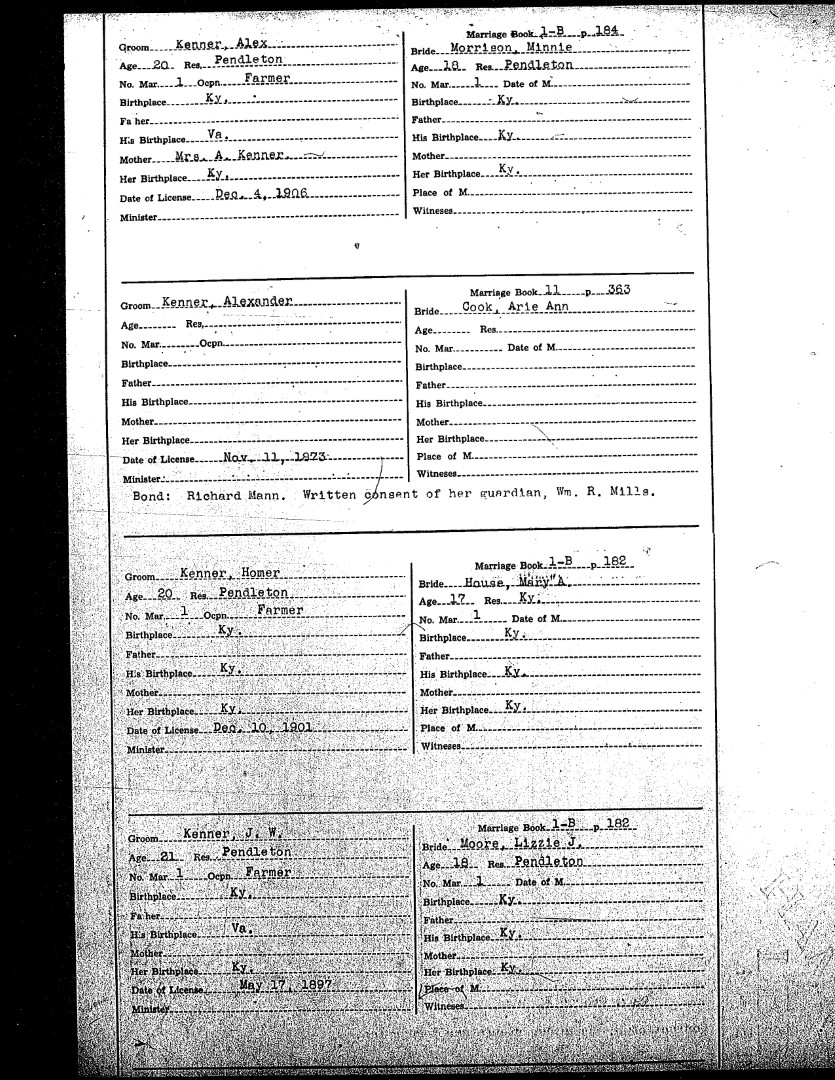 Marriage Book 1-B p. 184
Groom Kenner, Alex
Bride Morrison, Minnie
Age 20 Res. Pendleton
Age 18 Res. Pendleton
No. Mar. 1 Ocpn. Farmer
No. Mar. 1 Date of M.
Birthplace Ky.
Birthplace Ky.
Fa her
Father
His Birthplace Va.
His Birthplace Ky.
Mother Mrs. A. Kenner
Mother
Her Birthplace Ky.
Her Birthplace Ky.
Date of License Dec. 4, 1906
Place of M.
Minister
Witneses
Marriage Book 11 p. 363
Groom Kenner, Alexander
Bride Cook, Arie Ann
Age Res.
Age Res.
No. Mar. Ocpn.
No. Mar. Date of M.
Birthplace
Birthplace
Father
Father
His Birthplace
His Birthplace
Mother
Mother
Her Birthplace
Her Birthplace
Date of License Nov. 11, 1873
Place of M.
Minister
Witneses
Bond: Richard Mann. Written consent of her guardian, Wm. R. Mills.
Marriage Book 1-B p. 182
Groom Kenner, Homer
Bride House, Mary A.
Age 20 Res. Pendleton
Age 17 Res. Ky.
No. Mar. 1 Ocpn. Farmer
No. Mar. 1 Date of M.
Birthplace Ky.
Birthplace Ky.
Father
Father
His Birthplace Ky.
His Birthplace Ky.
Mother
Mother
Her Birthplace Ky.
Her Birthplace Ky.
Date of License Dec. 10, 1901
Place of M.
Minister
Witneses
Marriage Book 1-B p. 182
Groom Kenner, J. W.
Bride Moore, Lizzie J.
Age 21 Res. Pendleton
Age 18 Res. Pendleton
No. Mar. 1 Ocpn. Farmer
No. Mar. 1 Date of M.
Birthplace Ky.
Birthplace Ky.
Fa her
Father
His Birthplace Va.
His Birthplace Ky.
Mother
Mother
Her Birthplace Ky.
Her Birthplace Ky.
Date of License May 17, 1897
Place of M.
Minister
Witneses